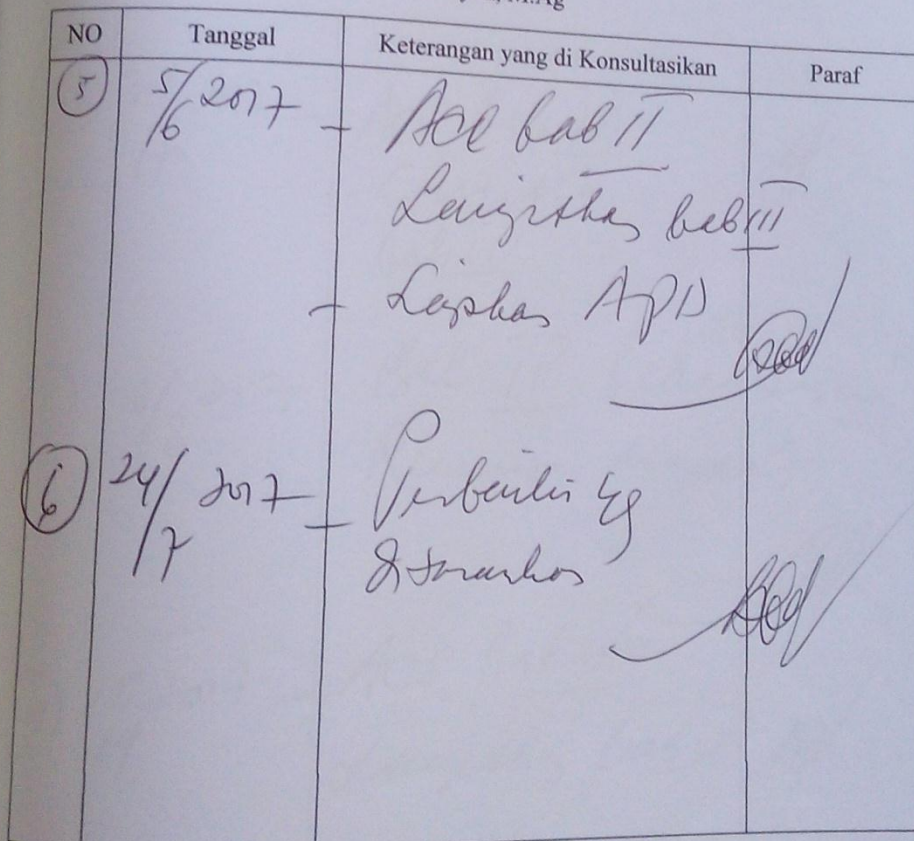 M.Ag
NO Tanggal Keterangan yang di Konsultasikan Paraf
5 5/6 2017 - Acc bab II
Lanjutkan bab III
- Siapkan APD
6 24/7 2017 - Perbaiki yg
disarankan